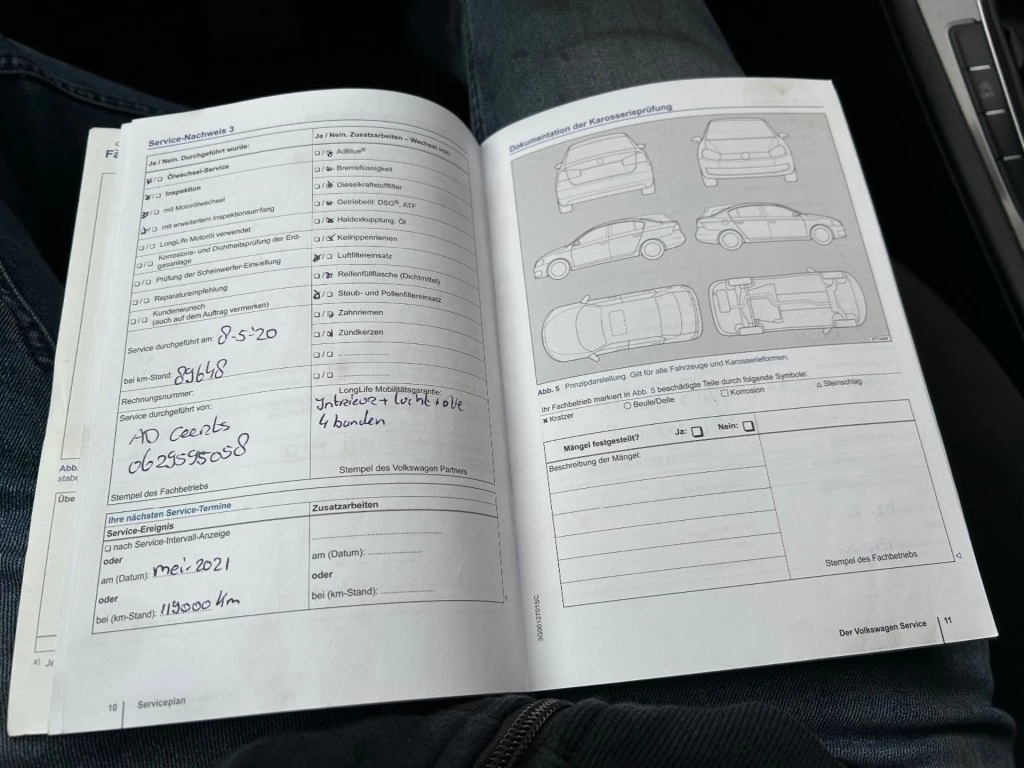 Service-Nachweis 3
Ja / Nein. Durchgeführt wurde:
Ölwechsel-Service
Inspektion
mit Motorölwechsel
mit erweitertem Inspektionsumfang
LongLife Motoröl verwendet
Korrosions- und Dichtheitsprüfung der Erd-
gasanlage
Prüfung der Scheinwerfer-Einstellung
Reparaturempfehlung
Kundenwunsch
(auch auf dem Auftrag vermerken)
Service durchgeführt am: 8-5-'20
bei km-Stand: 89648
Rechnungsnummer:
Service durchgeführt von:
AD Geerts
0629595058
Stempel des Fachbetriebs
Ja / Nein. Zusatzarbeiten – Wechsel von:
AdBlue®
Bremsflüssigkeit
Dieselkraftstofffilter
Getriebeöl: DSG®, ATF
Haldexkupplung: Öl
Keilrippenriemen
Luftfiltereinsatz
Reifenfüllflasche (Dichtmittel)
Staub- und Pollenfiltereinsatz
Zahnriemen
Zündkerzen
LongLife Mobilitätsgarantie:
Intrieur + lucht + olie
4 banden
Stempel des Volkswagen Partners
Ihre nächsten Service-Termine
Service-Ereignis
nach Service-Intervall-Anzeige
oder
am (Datum): mei-2021
oder
bei (km-Stand): 119000 Km
Zusatzarbeiten
am (Datum):
oder
bei (km-Stand):
10 Serviceplan
Abb.
Übe
a) Je
Dokumentation der Karosserieprüfung
Abb. 5 Prinzipdarstellung. Gilt für alle Fahrzeuge und Karosserieformen.
Ihr Fachbetrieb markiert in Abb. 5 beschädigte Teile durch folgende Symbole:
× Kratzer ○ Beule/Delle □ Korrosion △ Steinschlag
Mängel festgestellt? Ja: Nein:
Beschreibung der Mängel:
Stempel des Fachbetriebs
3G0012701SC
Der Volkswagen Service 11